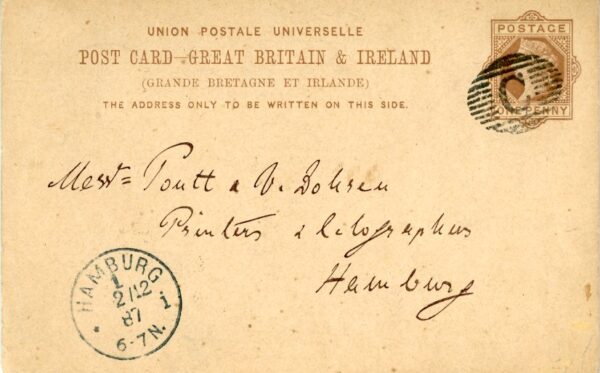 UNION POSTALE UNIVERSELLE
POST CARD-GREAT BRITAIN & IRELAND
(GRANDE BRETAGNE ET IRLANDE)
THE ADDRESS ONLY TO BE WRITTEN ON THIS SIDE.
POSTAGE
ONE PENNY
C
Messrs Pontt & V. Dohren
Printers & Litographers
Hamburg
HAMBURG
1
2/12
87
6-7N.
1